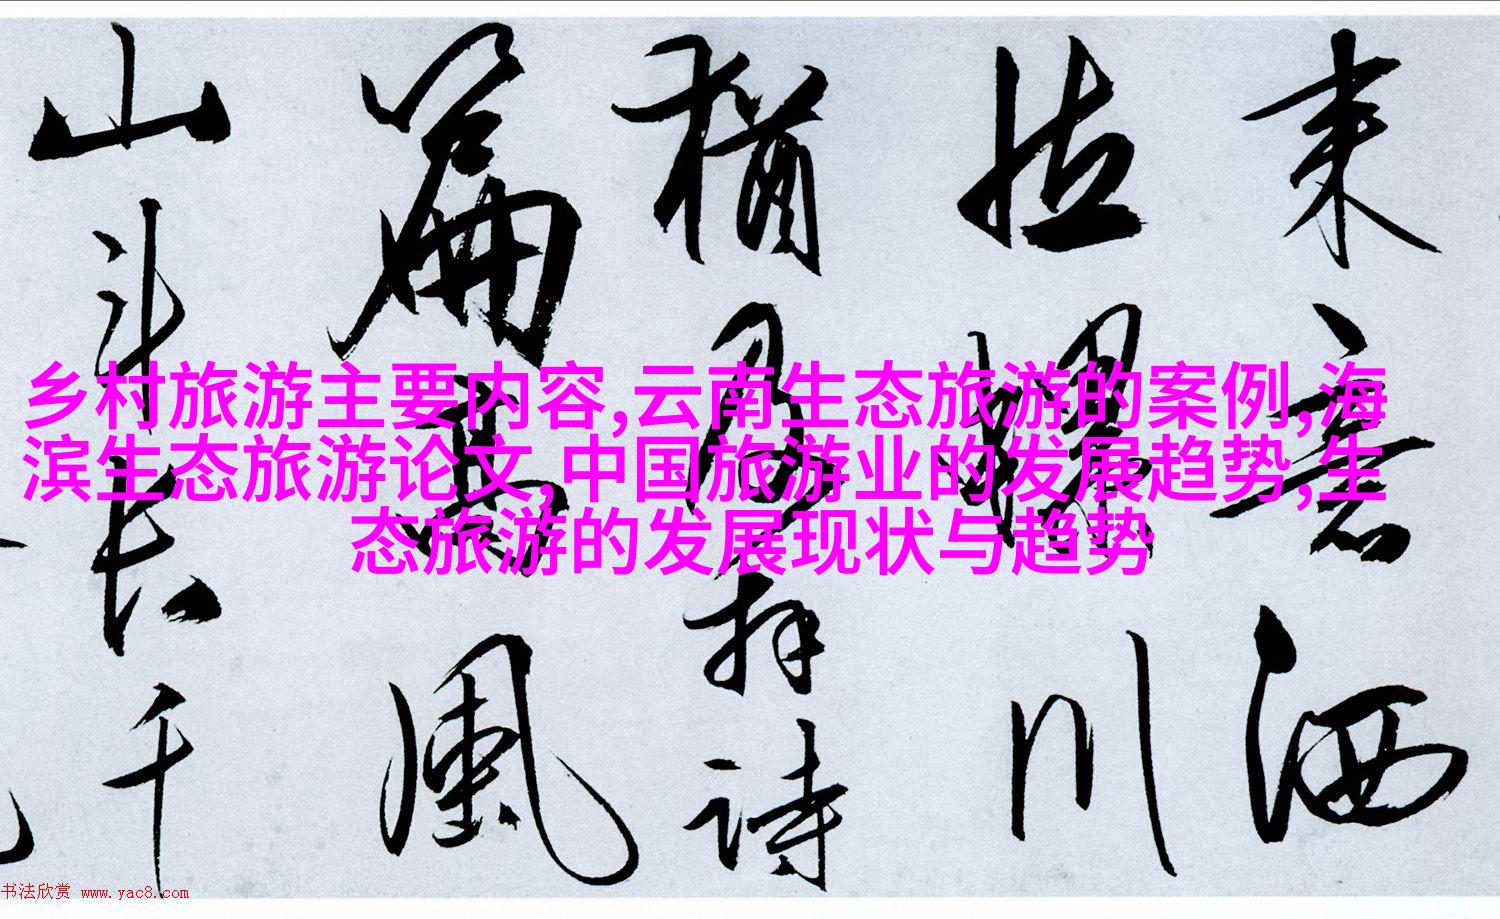 来意洒
拈 川
诗
篇 风
山斗长千
乡村旅游主要内容,云南生态旅游的案例,海
滨生态旅游论文,中国旅游业的发展趋势,生
态旅游的发展现状与趋势
书法欣赏 www.yac8.com